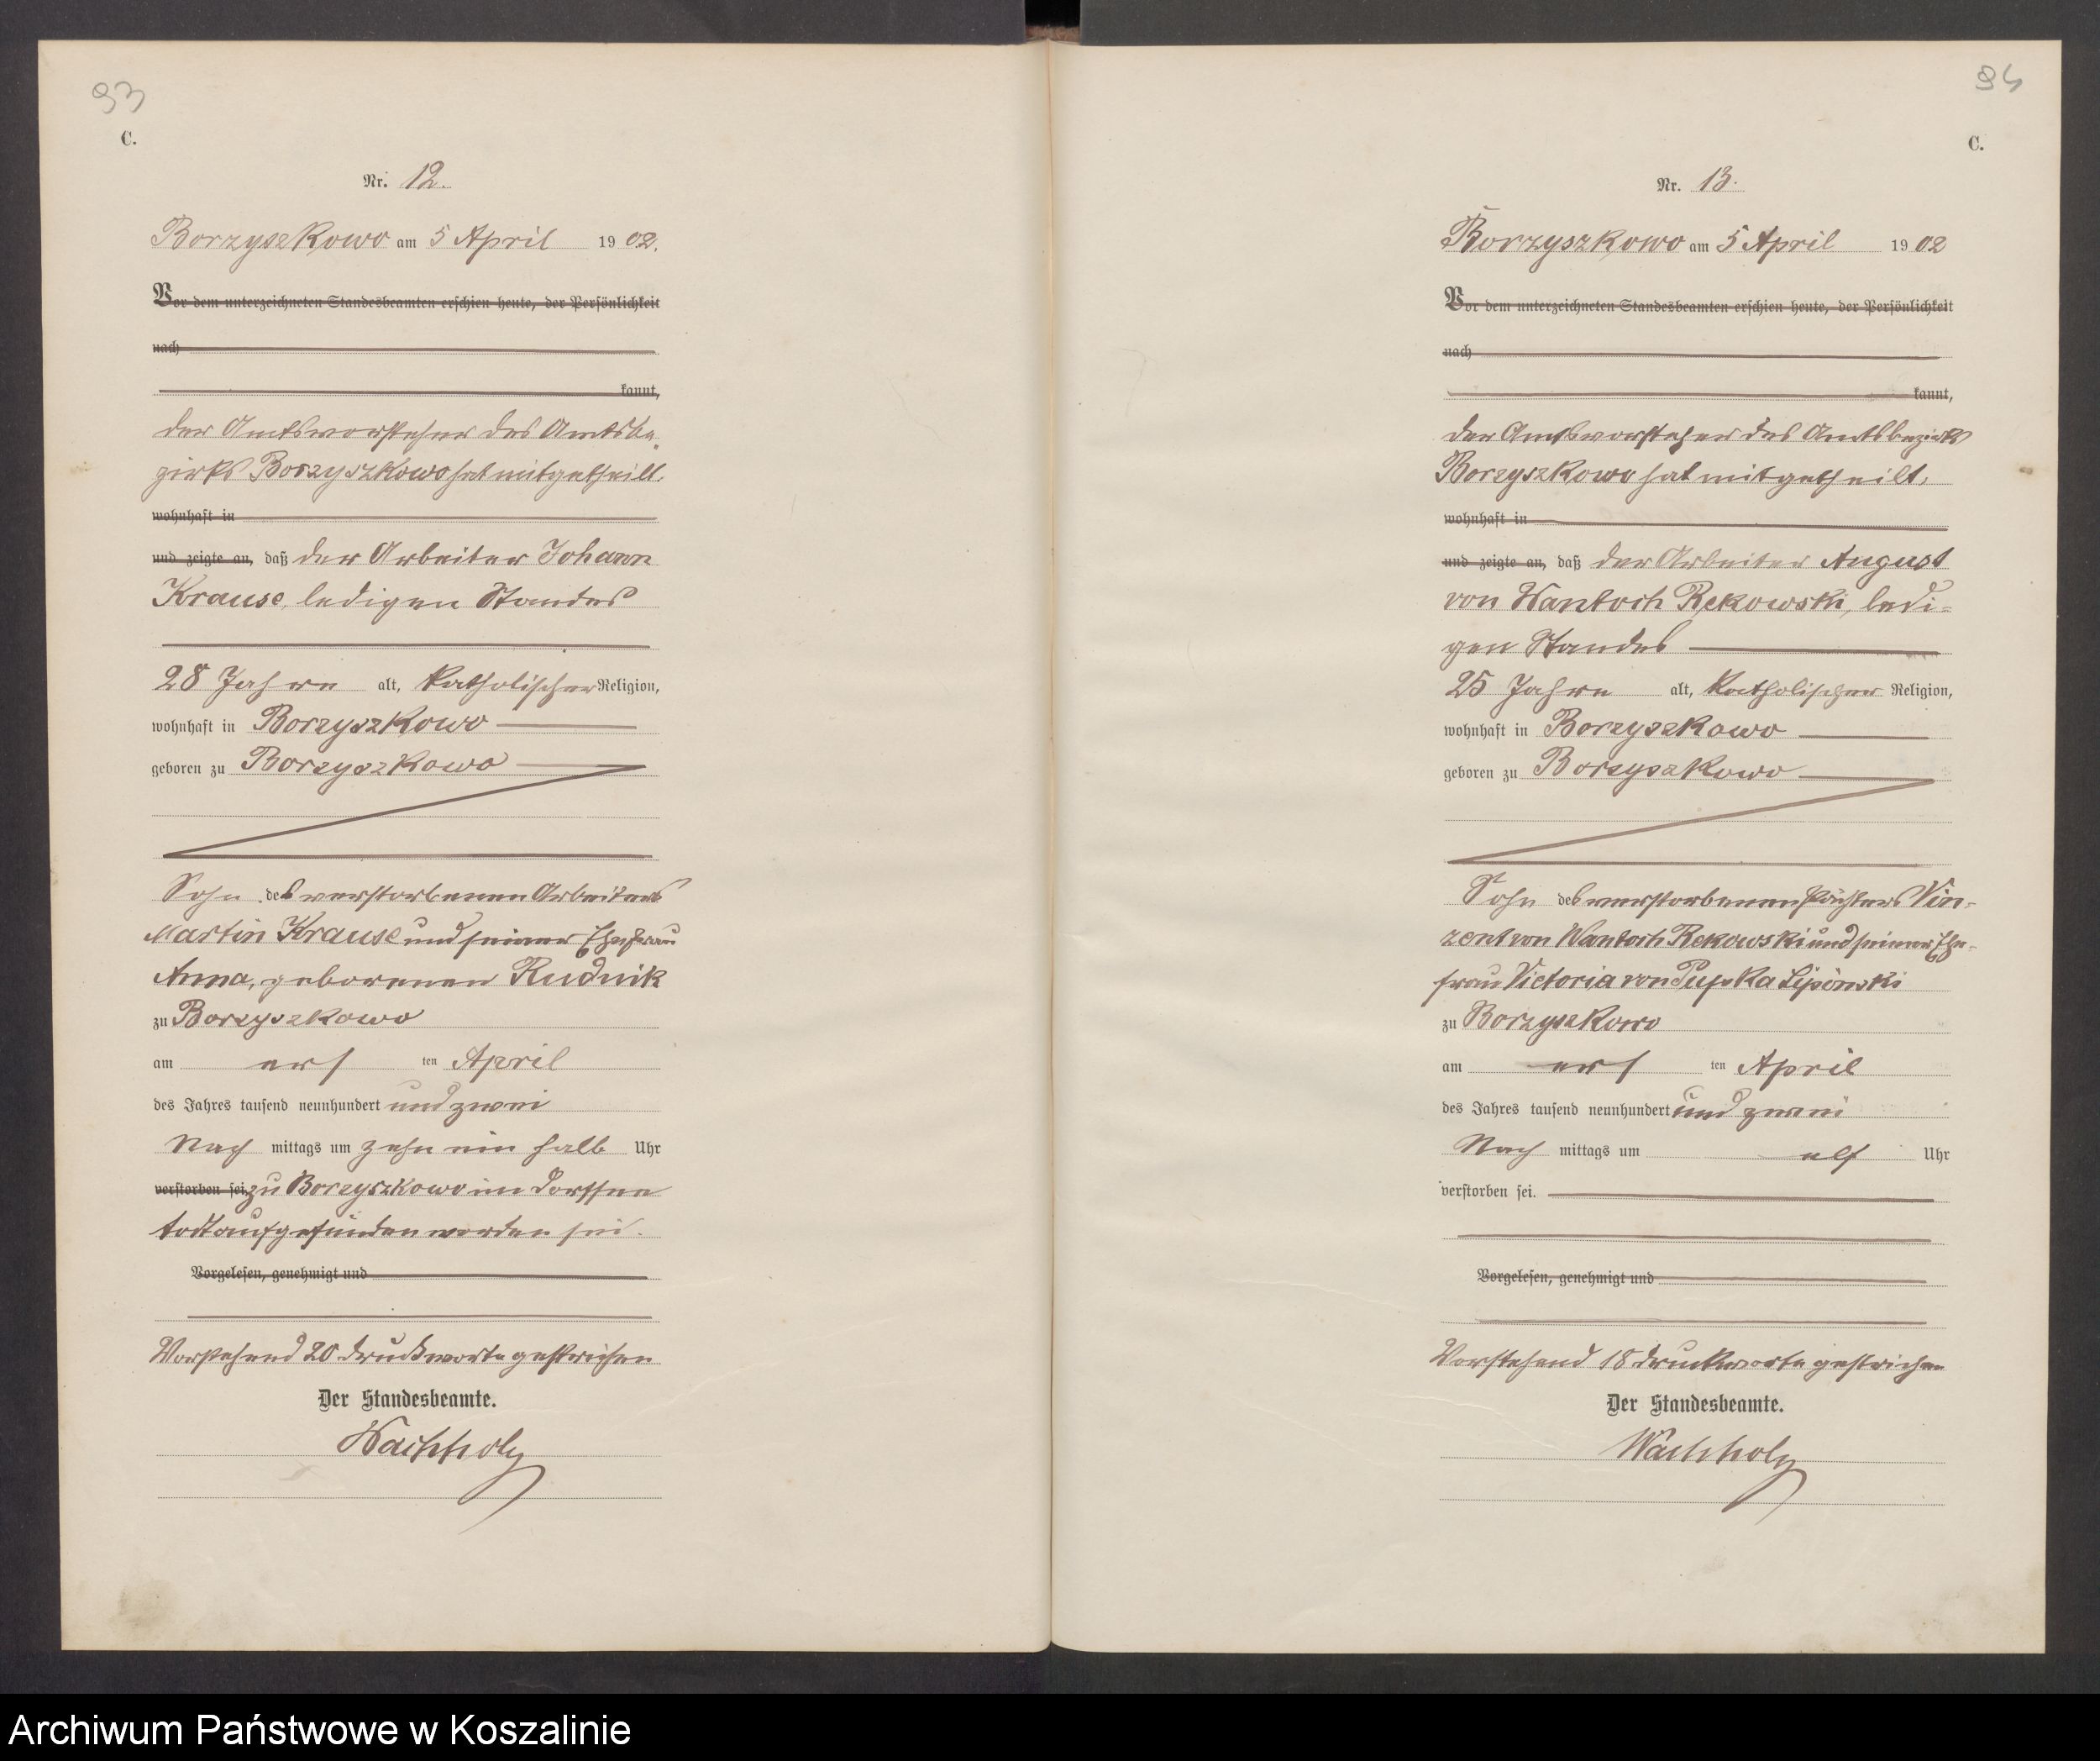 93
C.
Nr. 12.
Borzyszkowo am 5 April 1902.
Vor dem unterzeichneten Standesbeamten erschien heute, der Persönlichkeit
nach
kannt,
der Amtsvorsteher des Amtsbe-
zirks Borzyszkowo hat mitgetheilt,
wohnhaft in
und zeigte an, daß der Arbeiter Johann
Krause, ledigen Standes
28 Jahre alt, katholischer Religion,
wohnhaft in Borzyszkowo
geboren zu Borzyszkowo
Sohn des verstorbenen Arbeiters
Martin Krause und seiner Ehefrau
Anna, geborenen Rudnik
zu Borzyszkowo
am ers ten April
des Jahres tausend neunhundert und zwei
Nach mittags um zehn ein halb Uhr
verstorben sei zu Borzyszkowo im
todt aufgefunden worden sei.
Vorgelesen, genehmigt und
Vorstehend 20 Druckworte gestrichen
Der Standesbeamte.
Wachholz
94
C.
Nr. 13.
Borzyszkowo am 5 April 1902
Vor dem unterzeichneten Standesbeamten erschien heute, der Persönlichkeit
nach
kannt,
der Amtsvorsteher des Amtsbezirks
Borzyszkowo hat mitgetheilt,
wohnhaft in
und zeigte an, daß der Arbeiter August
von Wantoch Rekowski, ledi-
gen Standes
25 Jahre alt, katholischer Religion,
wohnhaft in Borzyszkowo
geboren zu Borzyszkowo
Sohn des verstorbenen Pächters Vin-
zent von Wantoch Rekowski und seiner Ehe-
frau Victoria von Lipinski
zu Borzyszkowo
am ers ten April
des Jahres tausend neunhundert und zwei
Nach mittags um elf Uhr
verstorben sei.
Vorgelesen, genehmigt und
Vorstehend 18 Druckworte gestrichen
Der Standesbeamte.
Wachholz
Archiwum Państwowe w Koszalinie